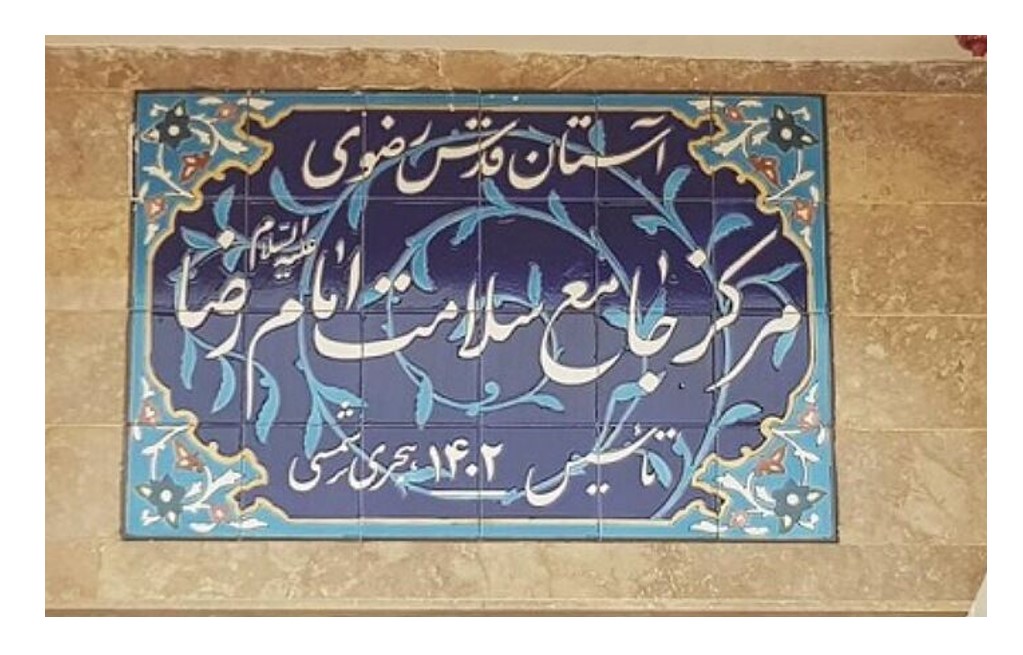 آستان قدس رضوی
مرکز جامع سلامت امام رضا علیه السلام
تأسیس ۱۴۰۲ هجری شمسی